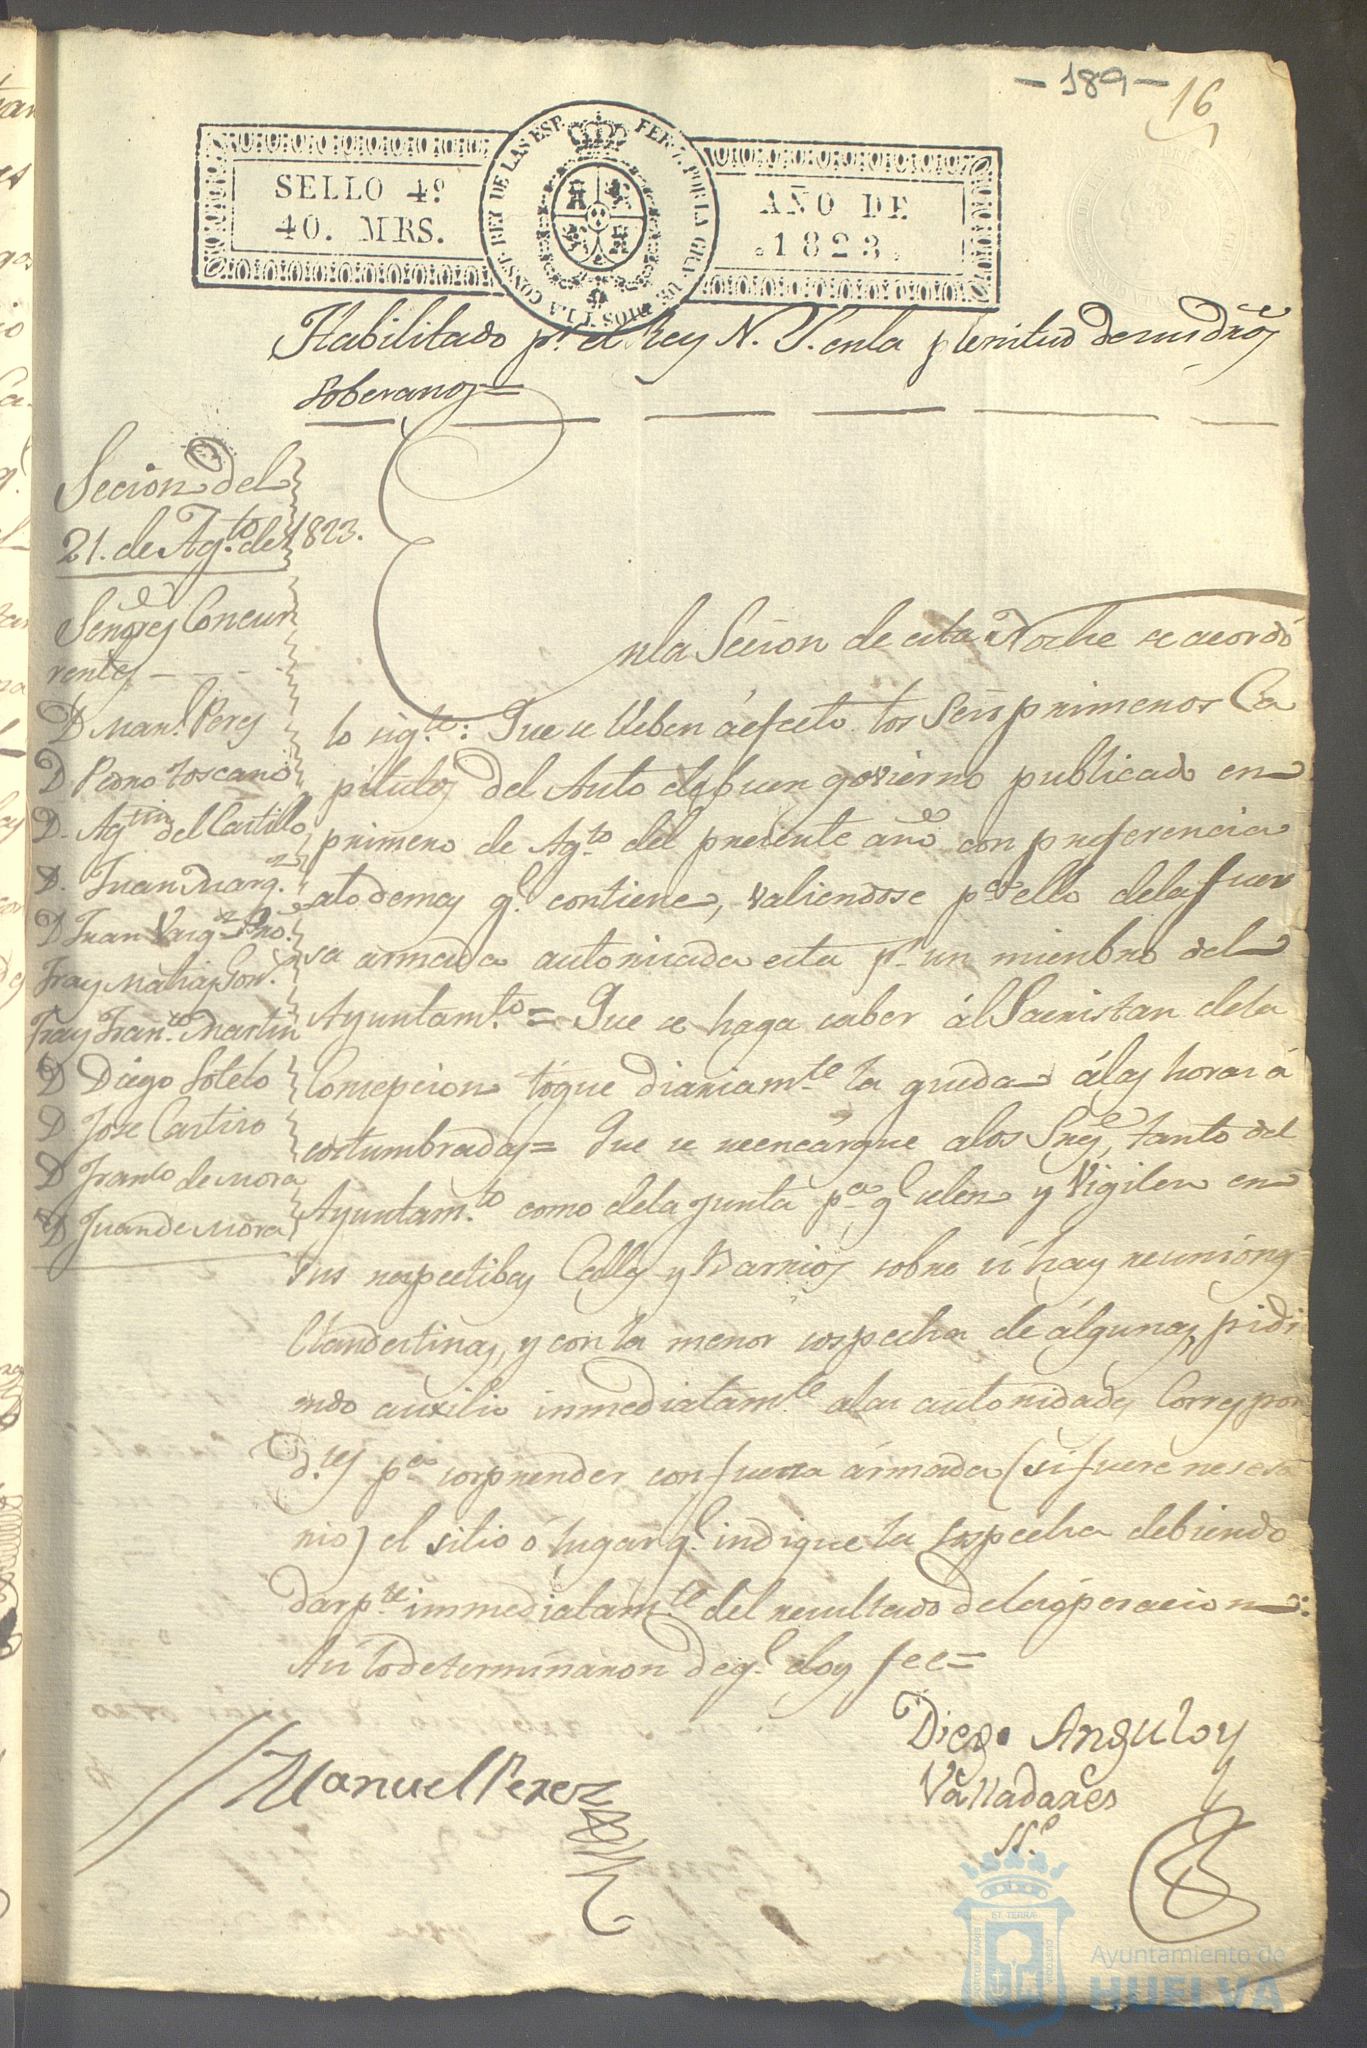 - 189 -
16
SELLO 4º
40. MRS.
FER. 7. POR LA GRA. DE DIOS Y LA CONST. REY DE LAS ESP.
AÑO DE
1823.
Habilitado pr. el Rey N. S. en la plenitud de sus dros
soberanos=
Secion del
21. de Agto. de 1823.
Señores Concur
rentes
D Manl. Peres
D Pedro toscano
D. Agtin del Castillo
D. Juan Marqz.
D Juan Vazqz
Fray Matias Gonz.
Fray Franco. Martin
D Diego Sotelo
D Jose Castiro
D Franco de Mora
D Juan de Mora
En la Secion de esta Noche se acordó
lo sigte: Que se lleben á efecto los Seis primeros Ca
pitulos del Auto de buen govierno publicado en
primero de Agto del presente año con preferencia
a lo demas q. contiene, valiendose pa. ello de la fuer
sa armada autorisada esta pr. un miembro del
Ayuntamto.= Que se haga saber ál Sacristan de la
Consepcion tóque diariamte la queda á las horas á
costumbradas= Que se reencárgue a los Sres, tanto del
Ayuntamto. como de la Junta pa. q. selen y Vigilen en
sus respectibas Calles y Barrios sobre si hay reuniónes
Clandestinas, y con la menor sospecha de álgunas, pidi
endo auxilio inmediatamte. a las autoridades Correspon
dtes pa. sorprender con fuerza ármada (si fuere nesesa
rio) el sitio ó lugar q. indique la sospecha debiendo
dar pte. immediatamte. del resultado de la óperacion:
Asi lo determinaron de q. doy fee=
Manuel Perez
Diego Angulo y
Valladares
Sº.
Ayuntamiento de
HUELVA